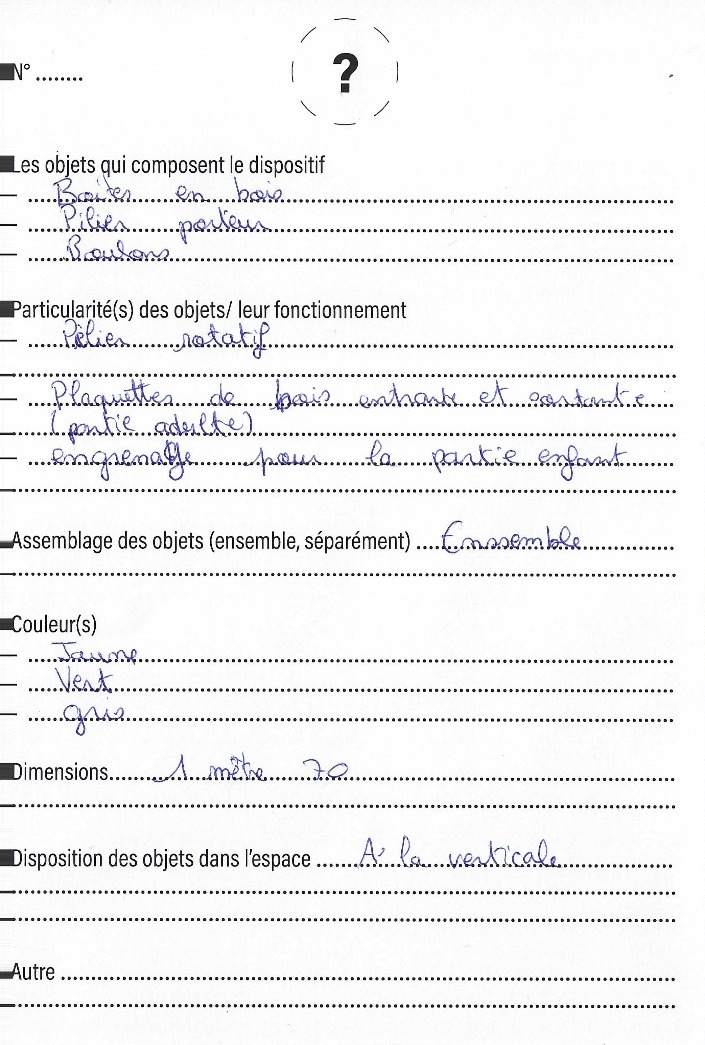 ?
N° ........
Les objets qui composent le dispositif
– Boites en bois
– Pilier porteur
– Boulons
Particularité(s) des objets/ leur fonctionnement
– Pilier rotatif
– Plaquettes de bois entrante et sortante
(partie adulte)
– engrenage pour la partie enfant
Assemblage des objets (ensemble, séparément) .... Enssemble
Couleur(s)
– Jaune
– Vert
– gris
Dimensions........ 1 mètre 70
Disposition des objets dans l'espace ...... A la verticale
Autre